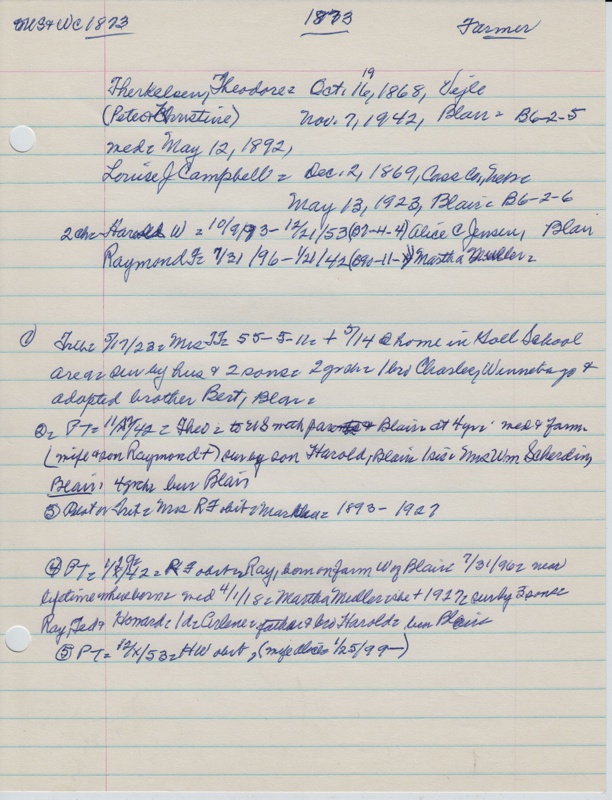 US & WC 1873 1873 Farmer
Therkelsen, Theodore = Oct. 16, 1868, Vejle
19
(Peter & Christine) Nov. 7, 1942, Blair = B6-2-5
med = May 12, 1892,
Louise J Campbell = Dec. 2, 1869, Cass Co, Nebr =
May 13, 1923, Blair = B6-2-6
2 ch = Harold W = 10/9/93 - 12/21/53 (B7-4-4) Alice C Jensen, Blair
Raymond F = 7/31/96 - 1/21/42 (B90-11- Martha Mueller =
① Trib = 5/17/23 = Mrs TT = 55-5-11 = + 5/14 @ home in Holl School
area = sur by hus & 2 sons = 2 grch = 1 bro Charles, Winnebago &
adopted brother Bert, Blair =
② = PT = 42 = Theo = to US with parents Blair at 4 yrs med & farm
(wife & son Raymond +) sur by son Harold, Blair 1 sis = Mrs Wm Scherding
Blair, 4 grch bur Blair
③ = Mrs R F obit = Martha = 1893 - 1927
④ PT = 42 = R F obit = Ray, born on farm W of Blair 7/31/96 = near
lifetime where born = med 4/1/18 = Martha Mueller she + 1927 = sur by 3 sons =
Ray, Ted & Howard = 1 d = Arlene = father & bro Harold = bur Blair
⑤ PT = 12/ /53 = HW obit, (wife Alice 1/25/99 - )